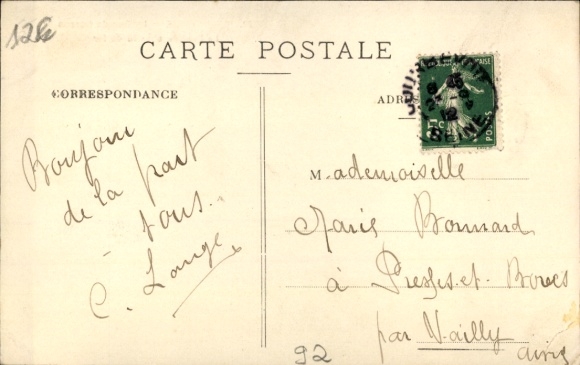 126
CARTE POSTALE
CORRESPONDANCE
ADRES
Bonjour
de la part
tous.
C. Lange
Mademoiselle
Marie Bonnard
à Presles-et-Boves
par Vailly
Aisne
5c
POSTES
COURBEVOIE
SEINE
92